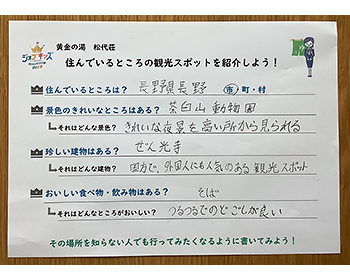 黄金の湯 松代荘
ジョブキッズ
住んでいるところの観光スポットを紹介しよう！
住んでいるところは？ 長野県長野 市・町・村
景色のきれいなところはある？ 茶臼山動物園
それはどんな景色？ きれいな夜景を高い所から見られる
珍しい建物はある？ ぜん光寺
それはどんな建物？ 国方で、外国人にも人気のある観光スポット
おいしい食べ物・飲み物はある？ そば
それはどんなところがおいしい？ つるつるでのどごしが良い
その場所を知らない人でも行ってみたくなるように書いてみよう！